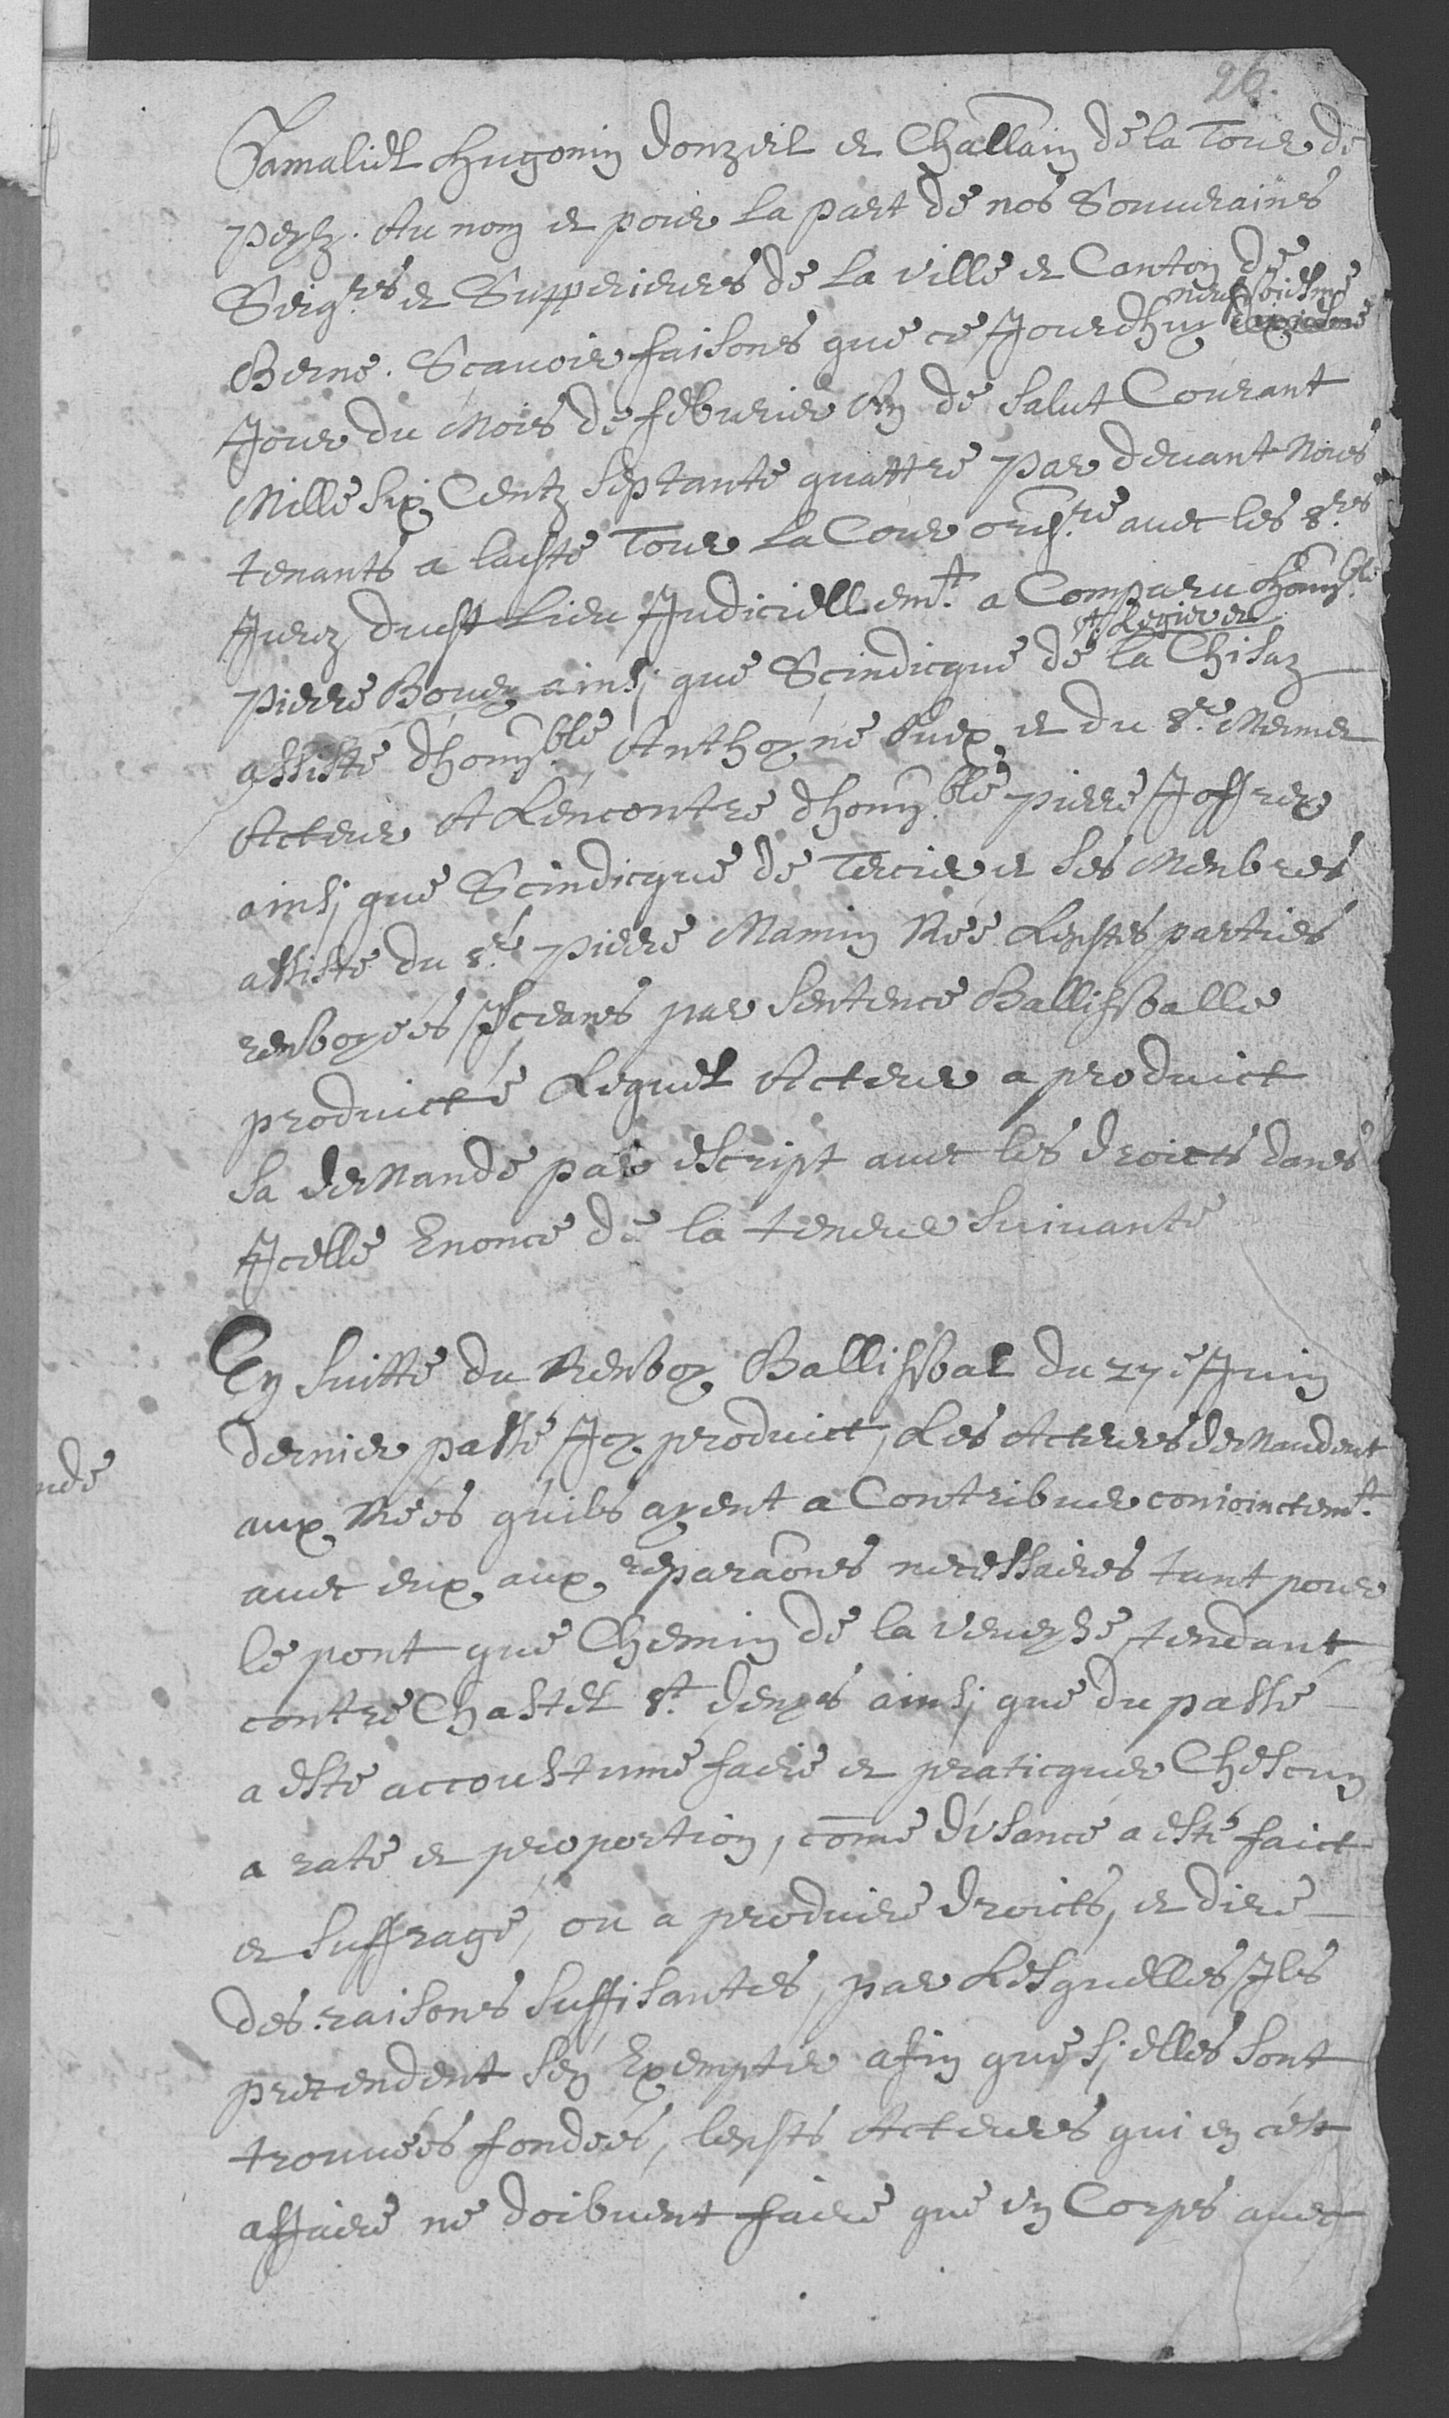 26.
Gamaliel Hugonin donzel et Challain de la Tour de
peylz. Au nom et pour la part de nos Souuerains
Seigrs. et Supperieurs de la ville et Canton de
neufuiesme
Berne. Scauoir faisons que ce Jourdhuy
Jour du Mois de feburier An de salut Courant
Mille six Centz septante quattre par deuant Nous
tenants a laste Tour la Cour ordre. auec les srs.
Jurez dust Lieu Judiciellemt. a Comparu honble.
A. Regier et
pierre Bouey ainsj que Scindicque de la Chisaz
assisté dhonble. Anthoyne Puex et du sr. Mermet
Acteur A Lencontre dhonble. pierre Joffrey
ainsj que Scindicque de Tercier et ses Menbres
assisté du sr. pierre Mamin Rée Leystes parties
renboyées Jsceans par sentence Ballifualle
produicte Lequel Acteur a produict
sa demande par escript auec les droicts dans
Jcelle Enoncé de la teneur suiuante
En suitte du Renboy Ballifual du 27e Juin
dernier passé Jcy produict, Les Acteurs demandent
aux Rées quils ayent a Contribuer conioinctemt.
auec eux aux reparaons necessaires tant pour
le pont que Chemin de la veueyse tendant
contre Chastel st. denys ainsj que du passé
a esté accoustumé faire et praticquer Chescun
a rate et proportion, come disance a esté faict
et suffragé, ou a produire droicts, et dire
des raisons suffisantes, par Lesquelles Jls
pretendent sen Exempter afin que sj elles sont
trouuées fondées, leysts Acteurs qui en cest
affaire ne doibuent faire que vn Corps auec
nde